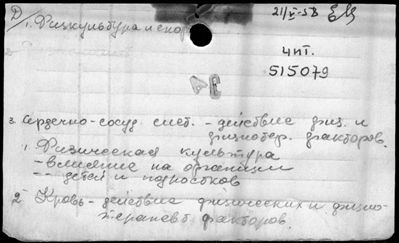 D
21/V-58
1. Физкультура и спорт
чит.
515079
3. Сердечно-сосуд. сист. - действие физ. и
физиотер. факторов.
1. Физическая культура
- влияние на организм
- " - детей и подростков
2. Кровь - действие физических и физио-
терапевт. факторов.